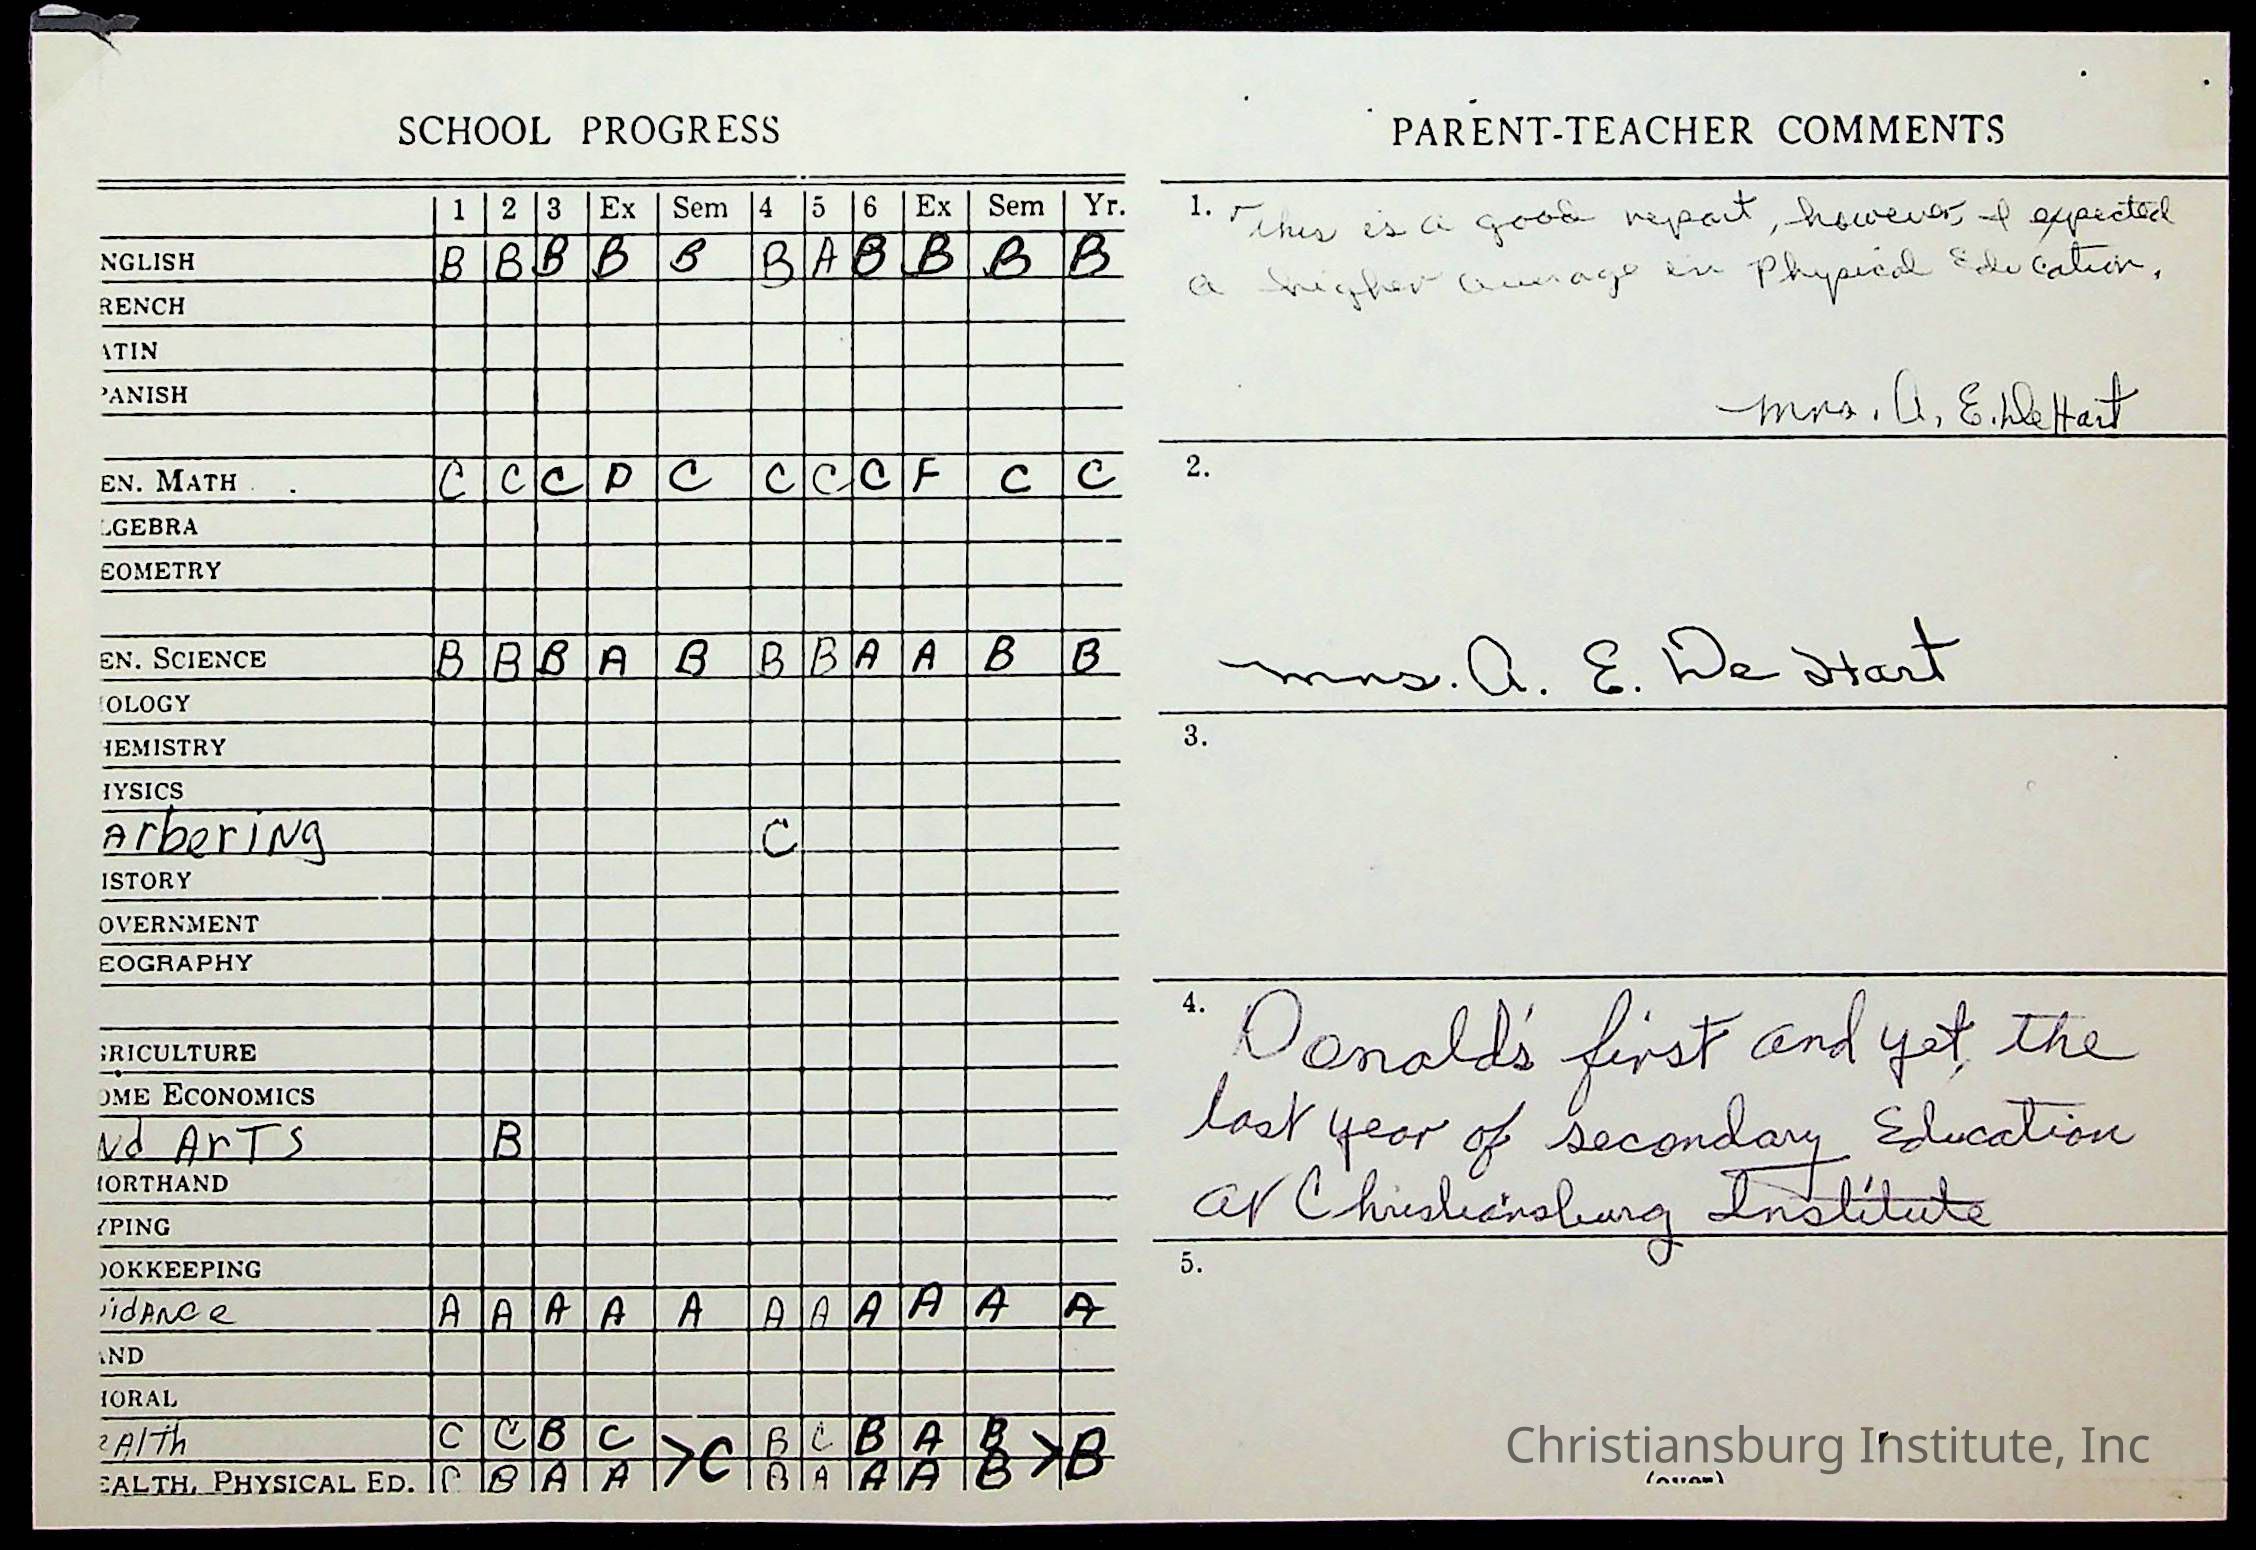 SCHOOL PROGRESS
1 2 3 Ex Sem 4 5 6 Ex Sem Yr.
NGLISH B B B B B B A B B B B
RENCH
ATIN
PANISH
EN. MATH C C C D C C C C F C C
LGEBRA
EOMETRY
EN. SCIENCE B B B A B B B A A B B
OLOGY
HEMISTRY
HYSICS
Arbering C
ISTORY
OVERNMENT
EOGRAPHY
GRICULTURE
OME ECONOMICS
Nd ArTS B
HORTHAND
YPING
OOKKEEPING
uidANCe A A A A A A A A A A A
AND
HORAL
eAlTh C C B C >C B C B A B >B
EALTH, PHYSICAL ED. C B A A B A A A B
PARENT-TEACHER COMMENTS
1. This is a good report, however, I expected
a higher average in Physical Education.
Mrs. A. E. DeHart
2.
Mrs. A. E. De Hart
3.
4. Donald's first and yet, the
last year of secondary Education
at Christiansburg Institute
5.
Christiansburg Institute, Inc
(over)